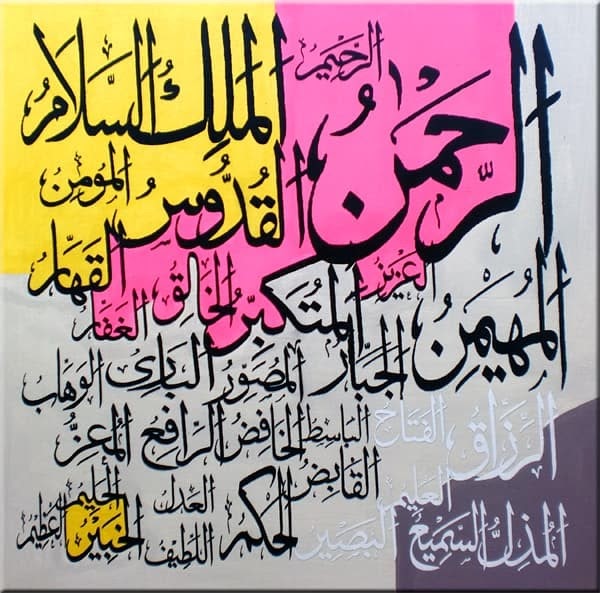 الرحمن الرحيم الملك السلام
القدوس المؤمن
المهيمن العزيز المتكبر الخالق القهار
الغفار
الجبار المصور البارئ الوهاب
الرزاق الفتاح الباسط الخافض الرافع المعز
القابض
العليم العدل الحليم
المذل السميع البصير الحكم اللطيف الخبير العظيم